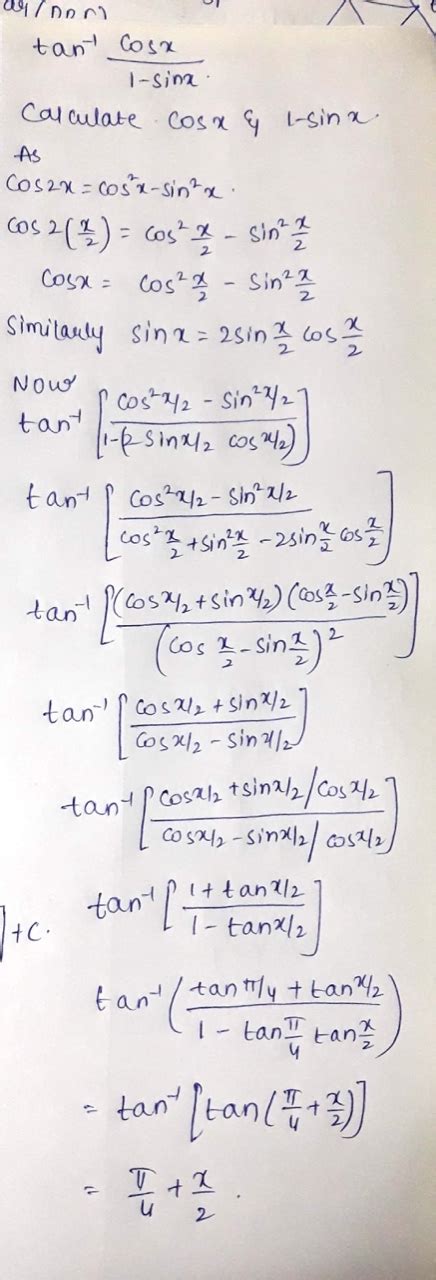 tan⁻¹ cosx / 1-sinx.
Calculate cosx & 1-sinx.
As
Cos2x = cos²x - sin²x.
Cos 2(x/2) = cos² x/2 - sin² x/2
Cosx = Cos² x/2 - Sin² x/2
Similarly sinx = 2sin x/2 cos x/2
Now
tan⁻¹ [cos²x/2 - sin²x/2 / 1-(2sinx/2 cosx/2)]
tan⁻¹ [cos²x/2 - sin²x/2 / cos² x/2 + sin² x/2 - 2sin x/2 cos x/2]
tan⁻¹ [(cosx/2 + sinx/2)(cos x/2 - sin x/2) / (cos x/2 - sin x/2)²]
tan⁻¹ [cosx/2 + sinx/2 / cosx/2 - sinx/2]
tan⁻¹ [cosx/2 + sinx/2 / cosx/2 / cosx/2 - sinx/2 / cosx/2]
tan⁻¹ [1 + tanx/2 / 1 - tanx/2]
] + C.
tan⁻¹ (tan π/4 + tanx/2 / 1 - tan π/4 tan x/2)
= tan⁻¹ [tan(π/4 + x/2)]
= π/4 + x/2.